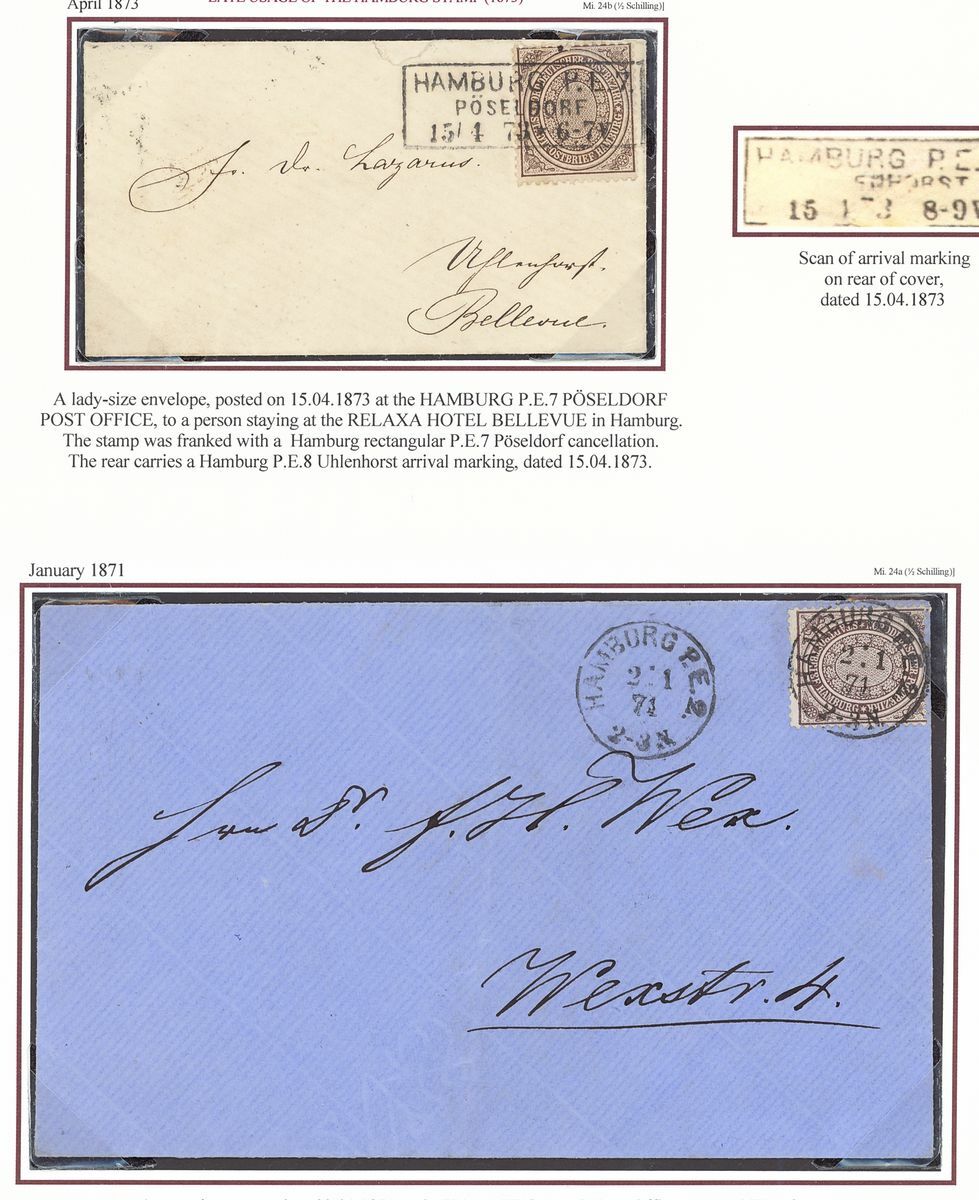 April 1873
LATE USAGE OF THE HAMBURG STAMP (1873)
Mi. 24b (½ Schilling)]
HAMBURG P.E.7.
PÖSELDORF
15/4 73 * 6-7V
NORDDEUTSCHER POSTBEZIRK
STADTPOSTBRIEF HAMBURG
Dr. Lazarus.
Uhlenhorst.
Bellevue.
HAMBURG P.E.
HORST
15 8-9V
Scan of arrival marking
on rear of cover,
dated 15.04.1873
A lady-size envelope, posted on 15.04.1873 at the HAMBURG P.E.7 PÖSELDORF
POST OFFICE, to a person staying at the RELAXA HOTEL BELLEVUE in Hamburg.
The stamp was franked with a Hamburg rectangular P.E.7 Pöseldorf cancellation.
The rear carries a Hamburg P.E.8 Uhlenhorst arrival marking, dated 15.04.1873.
January 1871
Mi. 24a (½ Schilling)]
HAMBURG P.E.2.
2 1
71
2-3N
HAMBURG P.E.2
2 1
71
2-3N
HAMBURG
Hrn Dr. J. H. Wex.
Wexstr. 4.